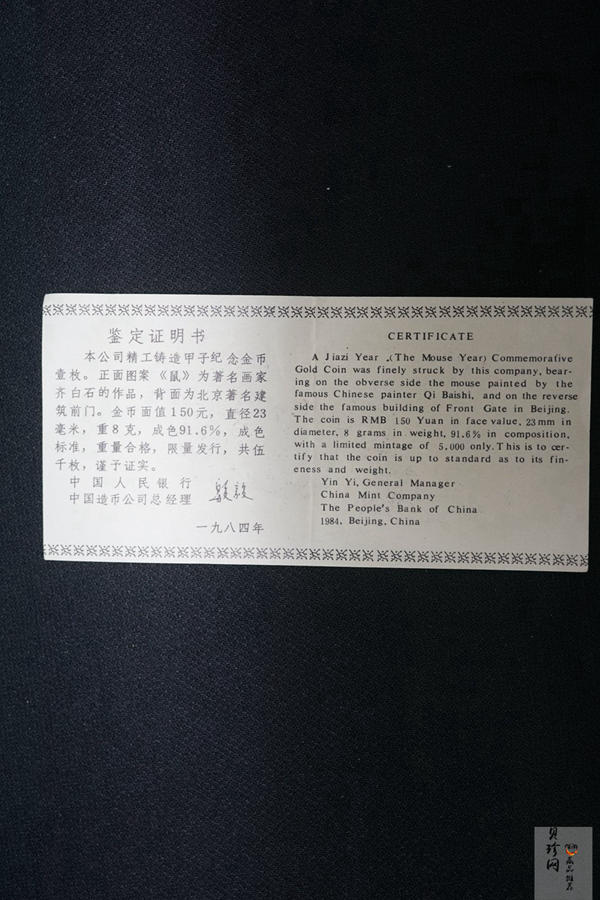 鉴定证明书
本公司精工铸造甲子纪念金币
壹枚。正面图案《鼠》为著名画家
齐白石的作品，背面为北京著名建
筑前门。金币面值150元，直径23
毫米，重8克，成色91.6%，成色
标准，重量合格，限量发行，共伍
千枚，谨予证实。
中国人民银行
中国造币公司总经理
一九八四年
CERTIFICATE
A Jiazi Year (The Mouse Year) Commemorative
Gold Coin was finely struck by this company, bear-
ing on the obverse side the mouse painted by the
famous Chinese painter Qi Baishi, and on the reverse
side the famous building of Front Gate in Beijing.
The coin is RMB 150 Yuan in face value, 23mm in
diameter, 8 grams in weight, 91.6% in composition,
with a limited mintage of 5,000 only. This is to cer-
tify that the coin is up to standard as to its fin-
eness and weight.
Yin Yi, General Manager
China Mint Company
The People's Bank of China
1984, Beijing, China
贝珍网